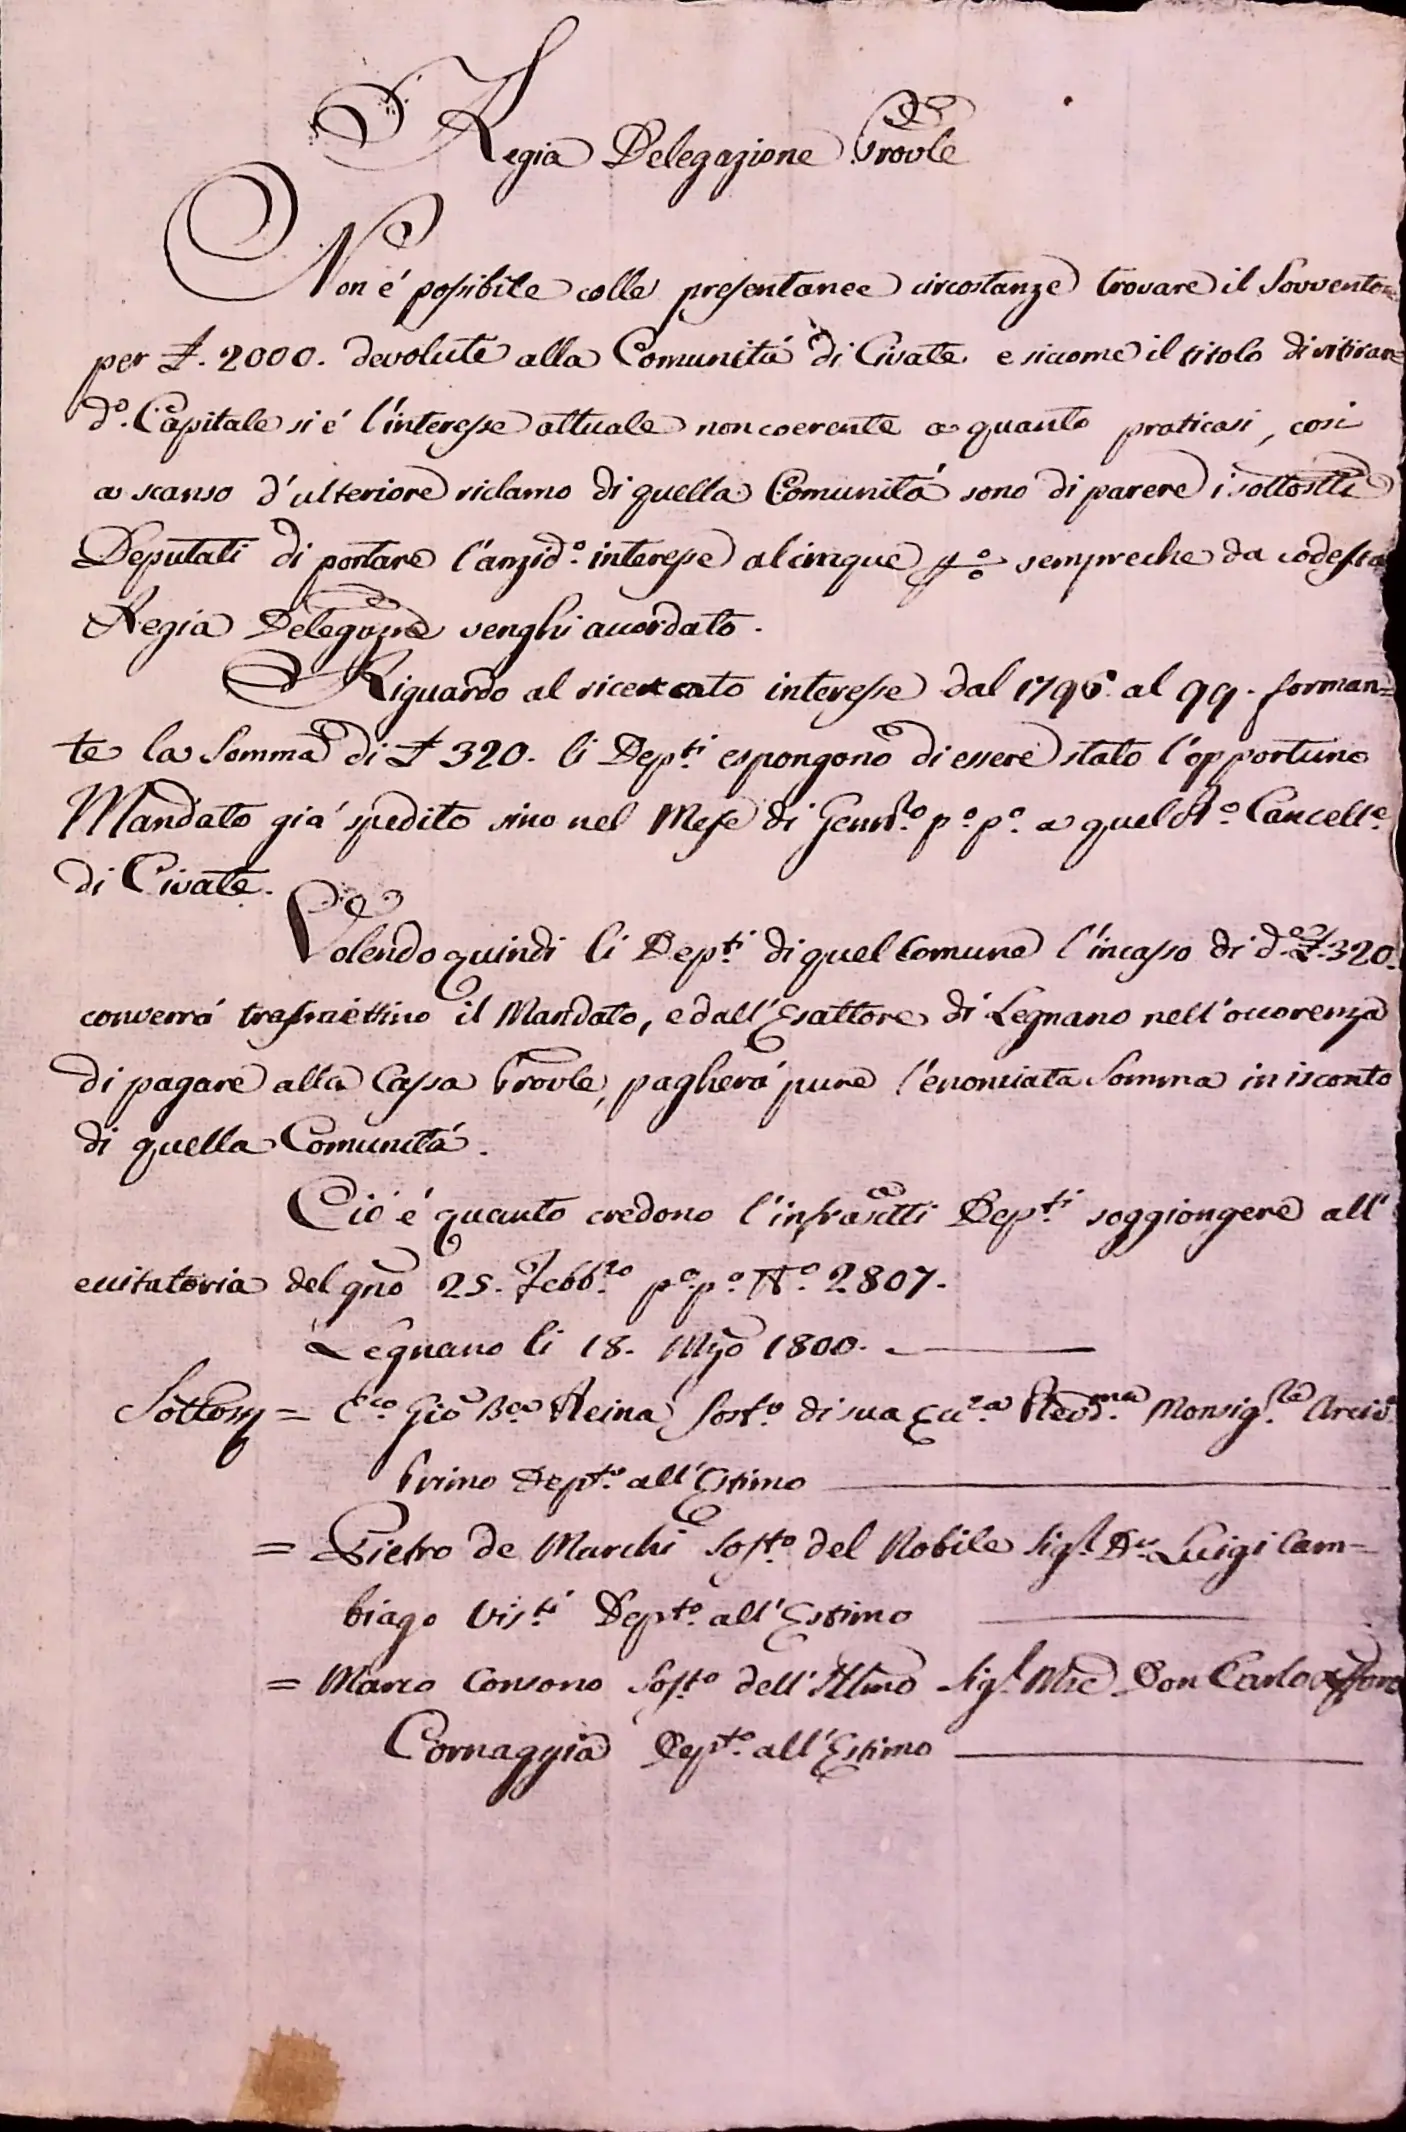 Regia Delegazione Provle
Non é possibile colle presentanee circostanze trovare il Sovvento=
per £. 2000. devolute alla Comunitá di Civate e siccome il titolo di ritiran=
do. Capitale si é l'interesse attuale non coerente a quanto praticasi, cosi
a scanso d'ulteriore riclamo di quella Comunitá sono di parere i sottostti
Deputati di portare l'anzido. interesse al cinque p%o sempreche da codesta
Regia Delegazne venghi accordato.
Riguardo al ricercato interesse dal 1796. al 99. forman=
te la Somma di £ 320. li Depti. espongono di essere stato l'opportuno
Mandato giá spedito sino nel Mese di Genro. po. po. a quel Ro. Cancelle.
di Civate.
Volendo quindi li Depti. di quel Comune l'incasso di de. £. 320.
converrá trasmettino il Mandato, e dall'Esattore di Legnano nell'occorenza
di pagare alla Cassa Provle, pagherá pure l'enonciata Somma in isconto
di quella Comunitá.
Ció é quanto credono l'infrascitti Depti. soggiongere all'
eccitatoria del gno 25. Febbro. po. po. No. 2807.
Legnano li 18. Mzo 1800.
Sottoss = Gio Bta Reina Sosto. di sua Ecca. Revdma Monsig. Arciv.
Primo Depto. all'Estimo
= Pietro de Marchi Sosto. del Nobile Sigr. Dn. Luigi Cam=
biago Visti. Depto. all'Estimo
= Marco Consono Sosto. dell'Illmo Sigr. Mse Don Carlo
Cornaggia Depto. all'Estimo